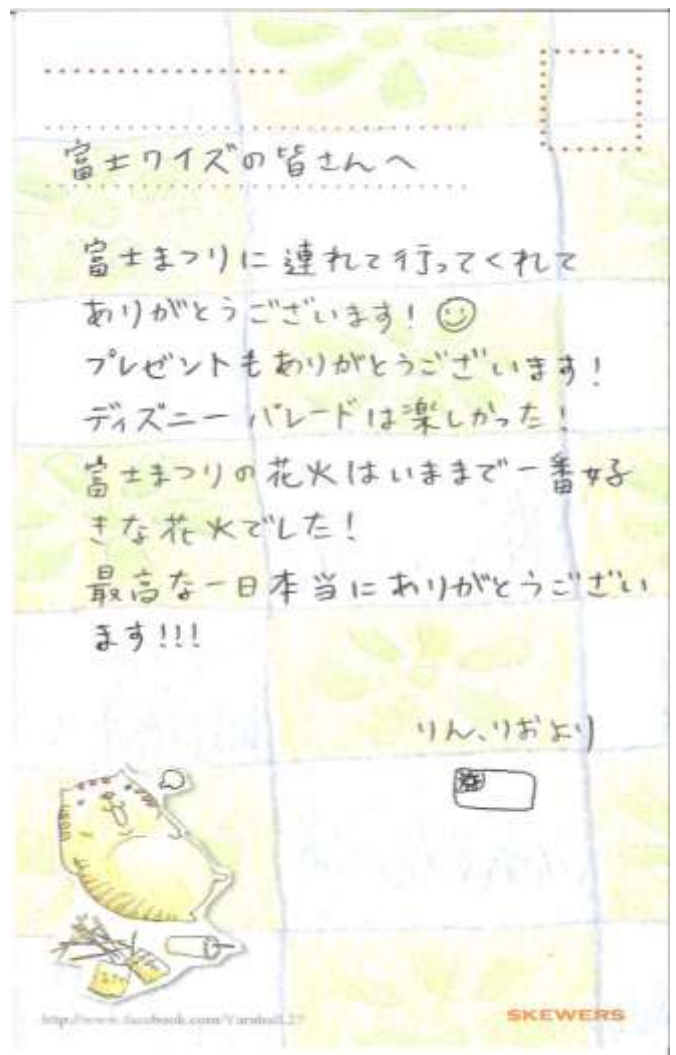 富士ワイズの皆さんへ
富士まつりに連れて行ってくれて
ありがとうございます!
プレゼントもありがとうございます!
ディズニーパレードは楽しかった!
富士まつりの花火はいままで一番好
きな花火でした!
最高な一日本当にありがとうござい
ます!!!
りん、りおより
http://www.facebook.com/
SKEWERS